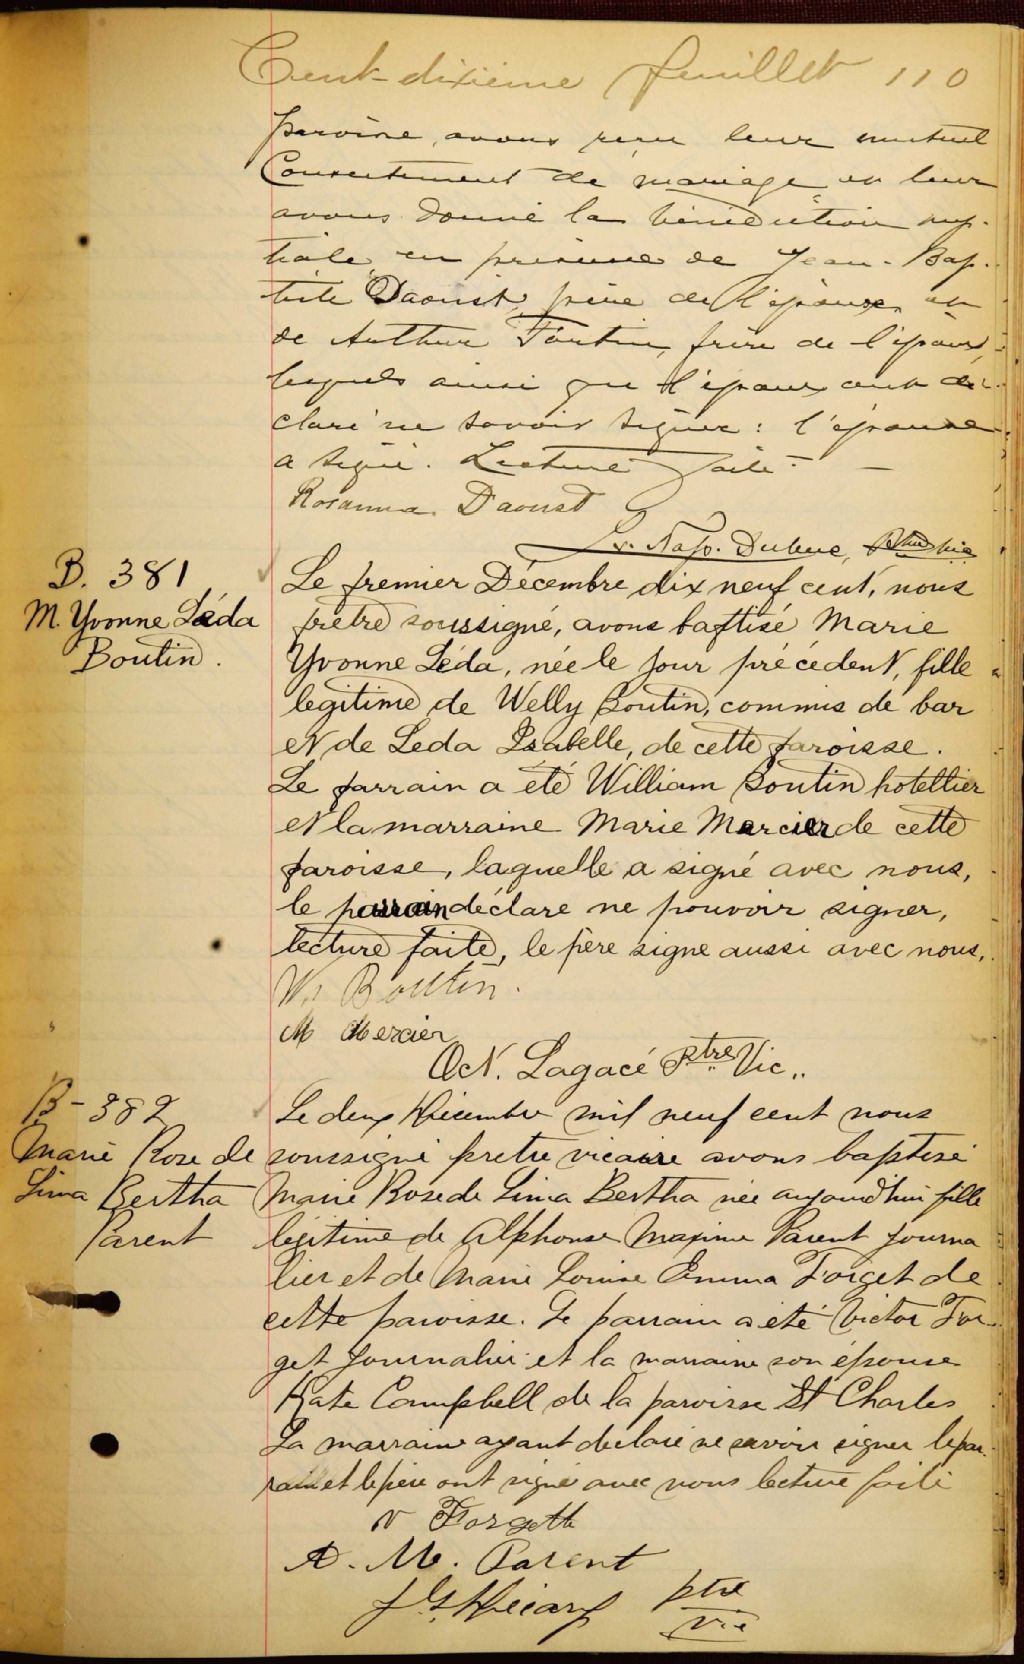 Cent-dixième feuillet 110
paroisse, avons reçu leur mutuel
Consentement de mariage et leur
avons donné la bénédiction nup-
tiale en présence de Jean-Bap-
tiste Daoust, père de l'épouse, et
de Arthur Fortin, frère de l'époux,
lesquels ainsi que l'époux ont dé-
claré ne savoir signer: l'épouse
a signé. Lecture faite. —
Rosanna Daoust
Nap. Dubuc, Ptre vic
B. 381
M. Yvonne Léda
Boutin.
Le premier Décembre dix neuf cent, nous
prêtre soussigné, avons baptisé Marie
Yvonne Léda, née le jour précédent, fille
legitime de Welly Boutin, commis de bar
et de Leda Isabelle, de cette paroisse.
Le parrain a été William Boutin hotellier
et la marraine Marie Mercier de cette
paroisse, laquelle a signé avec nous,
le parrain déclare ne pouvoir signer,
lecture faite, le père signe aussi avec nous,
W. Boutin.
M Mercier
Oct. Lagacé Ptre Vic..
B-382
Marie Rose de
Lima Bertha
Parent
Le deux Décembre mil neuf cent nous
soussigné pretre vicaire avons baptisé
Marie Rose de Lima Bertha née aujourd'hui fille
légitime de Alphonse Maxime Parent journa
lier et de Marie Louise Emma Forget de
cette paroisse. Le parrain a été Victor For-
get journalier et la marraine son épouse
Kate Campbell de la paroisse St Charles
La marraine ayant declaré ne savoir signer le par-
rain et le père ont signé avec nous lecture faite
V Forgette
A. M. Parent
ptre
vic